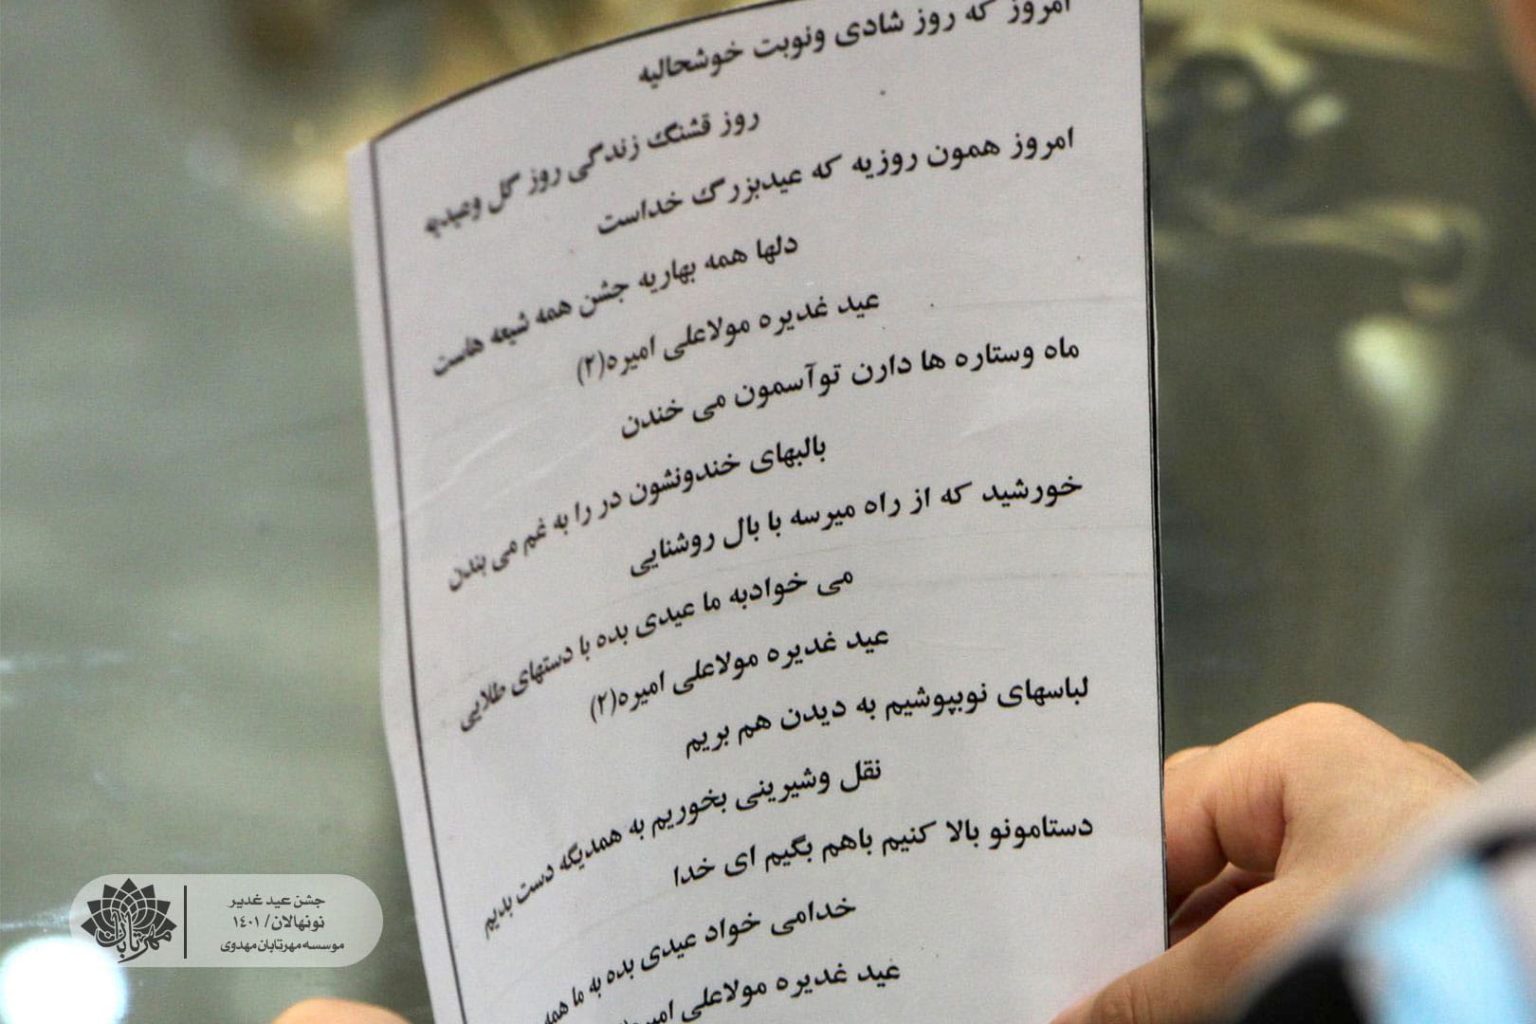 امروز که روز شادی ونوبت خوشحالیه
روز قشنگ زندگی روز گل وعیدیه
امروز همون روزیه که عیدبزرگ خداست
دلها همه بهاریه جشن همه شیعه هاست
عید غدیره مولاعلی امیره(۲)
ماه وستاره ها دارن توآسمون می خندن
بالبهای خندونشون در را به غم می بندن
خورشید که از راه میرسه با بال روشنایی
می خوادبه ما عیدی بده با دستهای طلایی
عید غدیره مولاعلی امیره(۲)
لباسهای نوبپوشیم به دیدن هم بریم
نقل وشیرینی بخوریم به همدیگه دست بدیم
دستامونو بالا کنیم باهم بگیم ای خدا
خدامی خواد عیدی بده به ما همه
عید غدیره مولاعلی امیره(
جشن عید غدیر
نونهالان/ ۱۴۰۱
موسسه مهرتابان مهدوی
مهرتابان